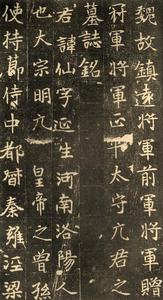 魏故鎮遠將軍前軍將軍贈
冠軍將軍正平太守元君之
墓誌銘
君諱仙字延生河南洛陽人
也太宗明元皇帝之曾孫
使持節侍中都督秦雍涇梁